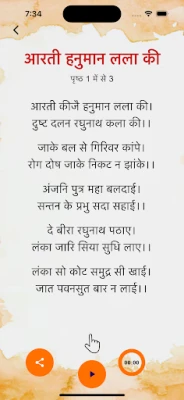 7:34
आरती हनुमान लला की
पृष्ठ 1 में से 3
आरती कीजै हनुमान लला की।
दुष्ट दलन रघुनाथ कला की।।
जाके बल से गिरिवर कांपे।
रोग दोष जाके निकट न झांके।।
अंजनि पुत्र महा बलदाई।
सन्तन के प्रभु सदा सहाई।।
दे बीरा रघुनाथ पठाए।
लंका जारि सिया सुधि लाए।।
लंका सो कोट समुद्र सी खाई।
जात पवनसुत बार न लाई।।
00:00